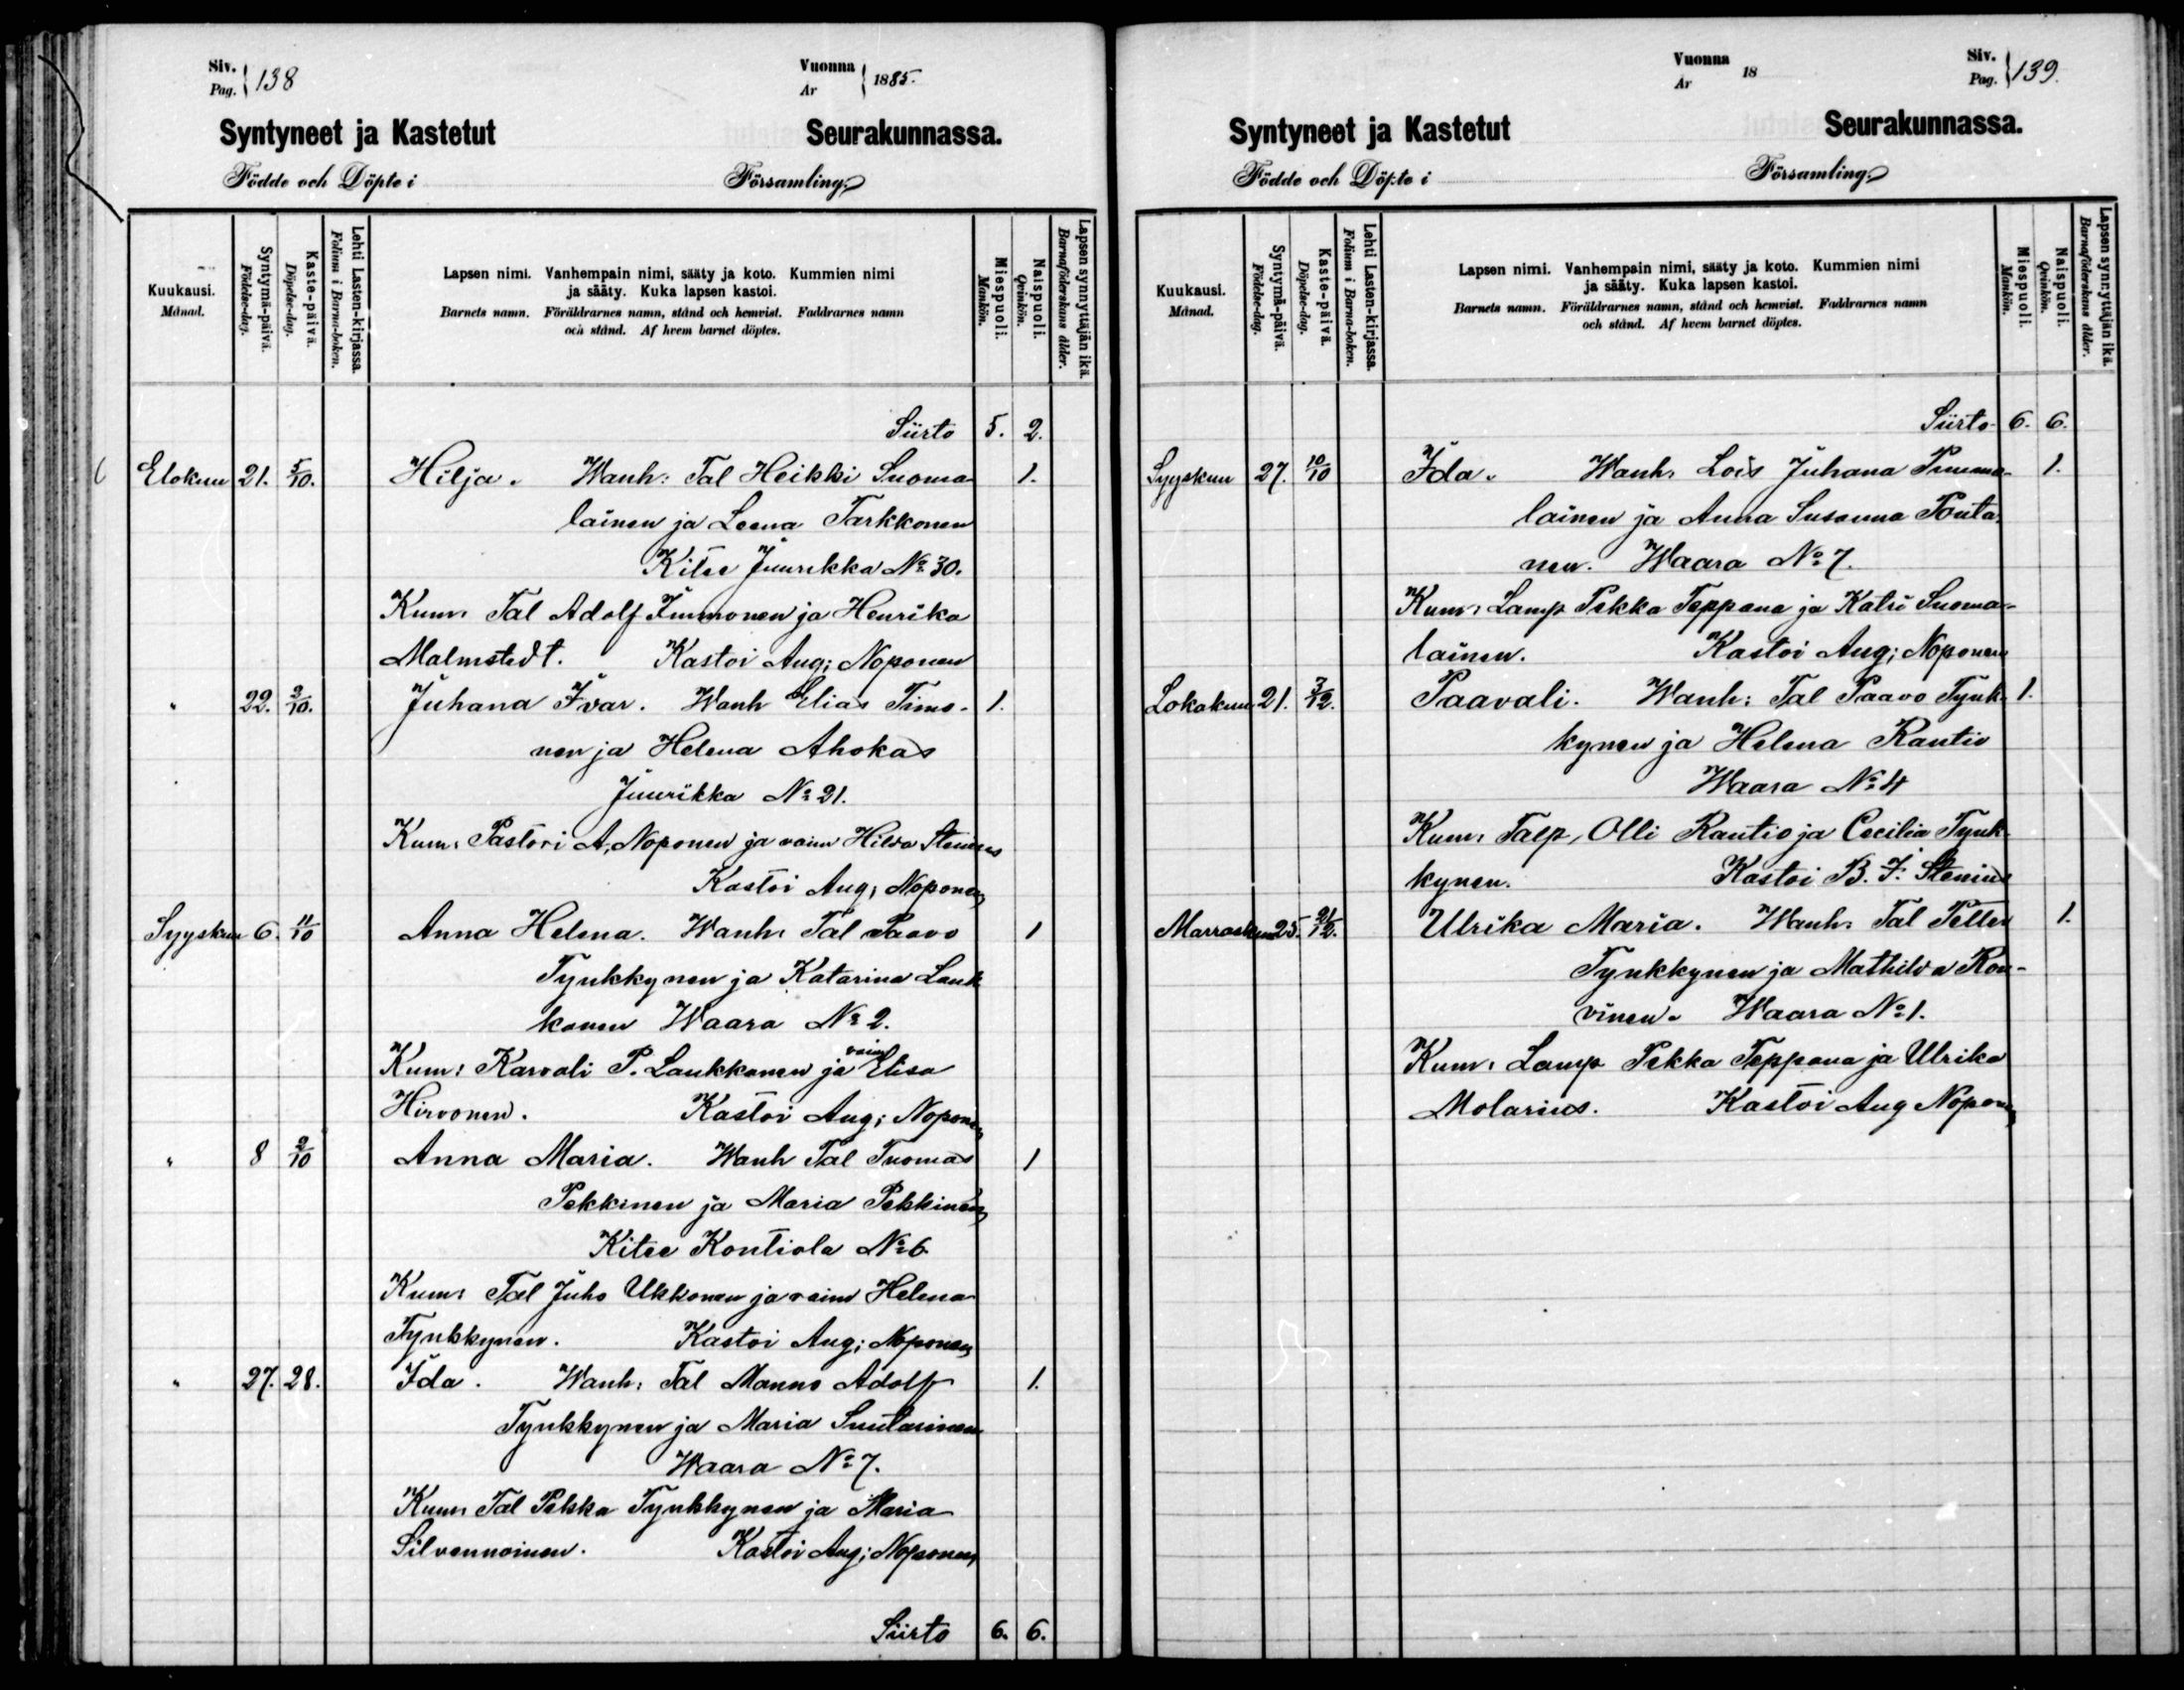 Siv. Pag. 138
Vuonna År 1885.
Syntyneet ja Kastetut Seurakunnassa.
Födde och Döpte i Församling.
Kuukausi. Månad.
Syntymä-päivä. Födelse-dag.
Kaste-päivä. Döpelse-dag.
Lehti Lasten-kirjassa. Folium i Barna-boken.
Lapsen nimi. Vanhempain nimi, sääty ja koto. Kummien nimi
ja sääty. Kuka lapsen kastoi.
Barnets namn. Föräldrarnes namn, stånd och hemvist. Faddrarnes namn
och stånd. Af hvem barnet döptes.
Miespuoli. Mankön.
Naispuoli. Qvinkön.
Lapsen synnyttäjän ikä. Barnaföderskans ålder.
Siirto 5. 2.
Elokuu 21. 5/10. Hilja. Wanh: Tal Heikki Suoma 1.
lainen ja Leena Tarkkonen
Kitee Juurikka No 30.
Kum: Tal Adolf Immonen ja Henrika
Malmstedt. Kastoi Aug; Noponen
" 22. 2/10. Juhana Ivar. Wanh Elias Timo- 1.
nen ja Helena Ahokas
Juurikka No 21.
Kum: Pastori A. Noponen ja vaim Hilda Stenius
Kastoi Aug; Noponen
Syyskuu 6. 11/10 Anna Helena. Wanh: Tal Paavo 1
Tynkkynen ja Katarina Lauk
konen Waara No 2.
Kum: Karvali P. Laukkanen ja vaim Elisa
Hirvonen. Kastoi Aug; Noponen
" 8 2/10 Anna Maria. Wanh Tal Tuomas 1
Pekkinen ja Maria Pekkinen
Kitee Kontiola No 6
Kum: Tal Juho Ukkonen ja vaim Helena
Tynkkynen. Kastoi Aug; Noponen
" 27. 28. Ida. Wanh: Tal Manno Adolf 1.
Tynkkynen ja Maria Suutarinen
Waara No 7.
Kum: Tal Pekka Tynkkynen ja Maria
Silvennoinen. Kastoi Aug; Noponen
Siirto 6. 6.
Vuonna År 18
Siv. Pag. 139.
Syntyneet ja Kastetut Seurakunnassa.
Födde och Döpte i Församling.
Kuukausi. Månad.
Syntymä-päivä. Födelse-dag.
Kaste-päivä. Döpelse-dag.
Lehti Lasten-kirjassa. Folium i Barna-boken.
Lapsen nimi. Vanhempain nimi, sääty ja koto. Kummien nimi
ja sääty. Kuka lapsen kastoi.
Barnets namn. Föräldrarnes namn, stånd och hemvist. Faddrarnes namn
och stånd. Af hvem barnet döptes.
Miespuoli. Mankön.
Naispuoli. Qvinkön.
Lapsen synnyttäjän ikä. Barnaföderskans ålder.
Siirto 6. 6.
Syyskuu 27. 10/10 Ida. Wanh: Lois Juhana Puuma- 1.
lainen ja Anna Susanna Pouta
nen. Waara No 7.
Kum: Lamp Pekka Teppana ja Katri Suoma-
lainen. Kastoi Aug; Noponen
Lokakuu 21. 3/12. Paavali. Wanh: Tal Paavo Tynk- 1.
kynen ja Helena Rautio
Waara No 4
Kum: Talp, Olli Rautio ja Cecilia Tynk-
kynen. Kastoi B. J. Stenius
Marraskuu 25. 21/12. Ulrika Maria. Wanh: Tal Petter 1.
Tynkkynen ja Mathilda Rou-
vinen. Waara No 1.
Kum: Lamp Pekka Teppana ja Ulrika
Molarius. Kastoi Aug Noponen